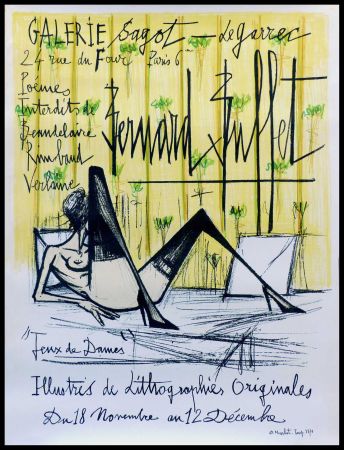 GALERIE Sagot - Le Garrec
24 rue du Four Paris 6e
Poèmes
interdits de
Beaudelaire
Rimbaud
Verlaine
Bernard Buffet
"Jeux de Dames"
Illustrés de Lithographies Originales
Du 18 Novembre au 12 Décembre